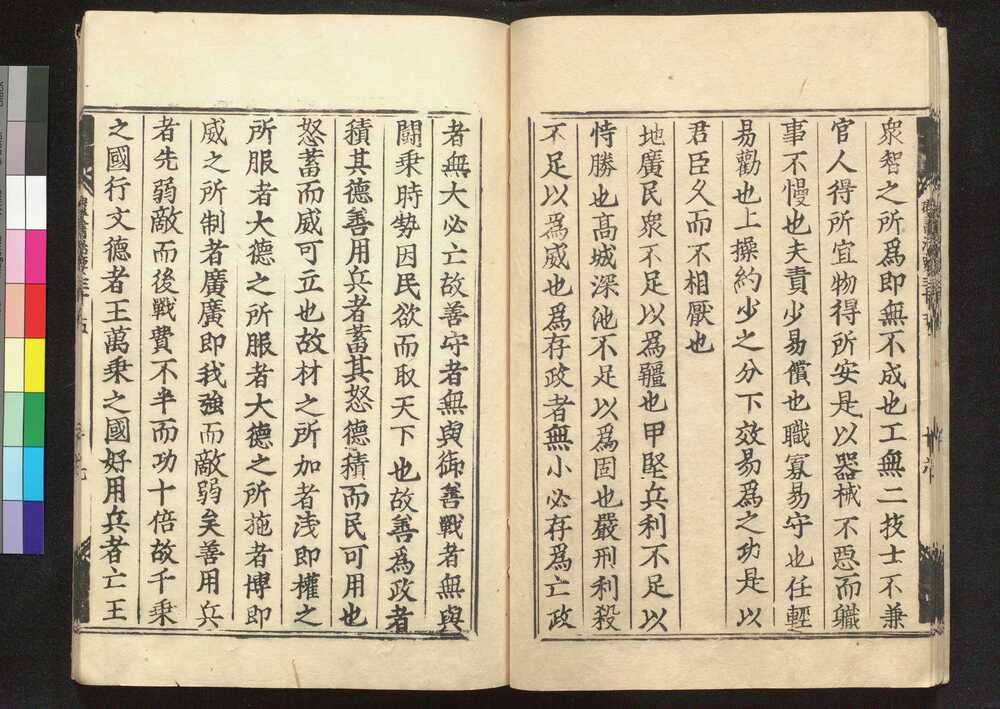 衆智之所爲即無不成也工無二技士不兼
官人得所宜物得所安是以器械不惡而職
事不慢也夫責少易償也職寡易守也任輕
易勸也上操約少之分下效易爲之功是以
君臣久而不相厭也
地廣民衆不足以爲彊也甲堅兵利不足以
恃勝也髙城深池不足以爲固也嚴刑利殺
不足以爲威也爲存政者無小必存爲亡政
者無大必亡故善守者無與御善戰者無與
鬪乗時勢因民欲而取天下也故善爲政者
積其德善用兵者蓄其怒德積而民可用也
怒蓄而威可立也故材之所加者浅即權之
所服者大德之所服者大德之所施者博即
威之所制者廣廣即我強而敵弱矣善用兵
者先弱敵而後戰費不半而功十倍故千乗
之國行文德者王萬乗之國好用兵者亡王